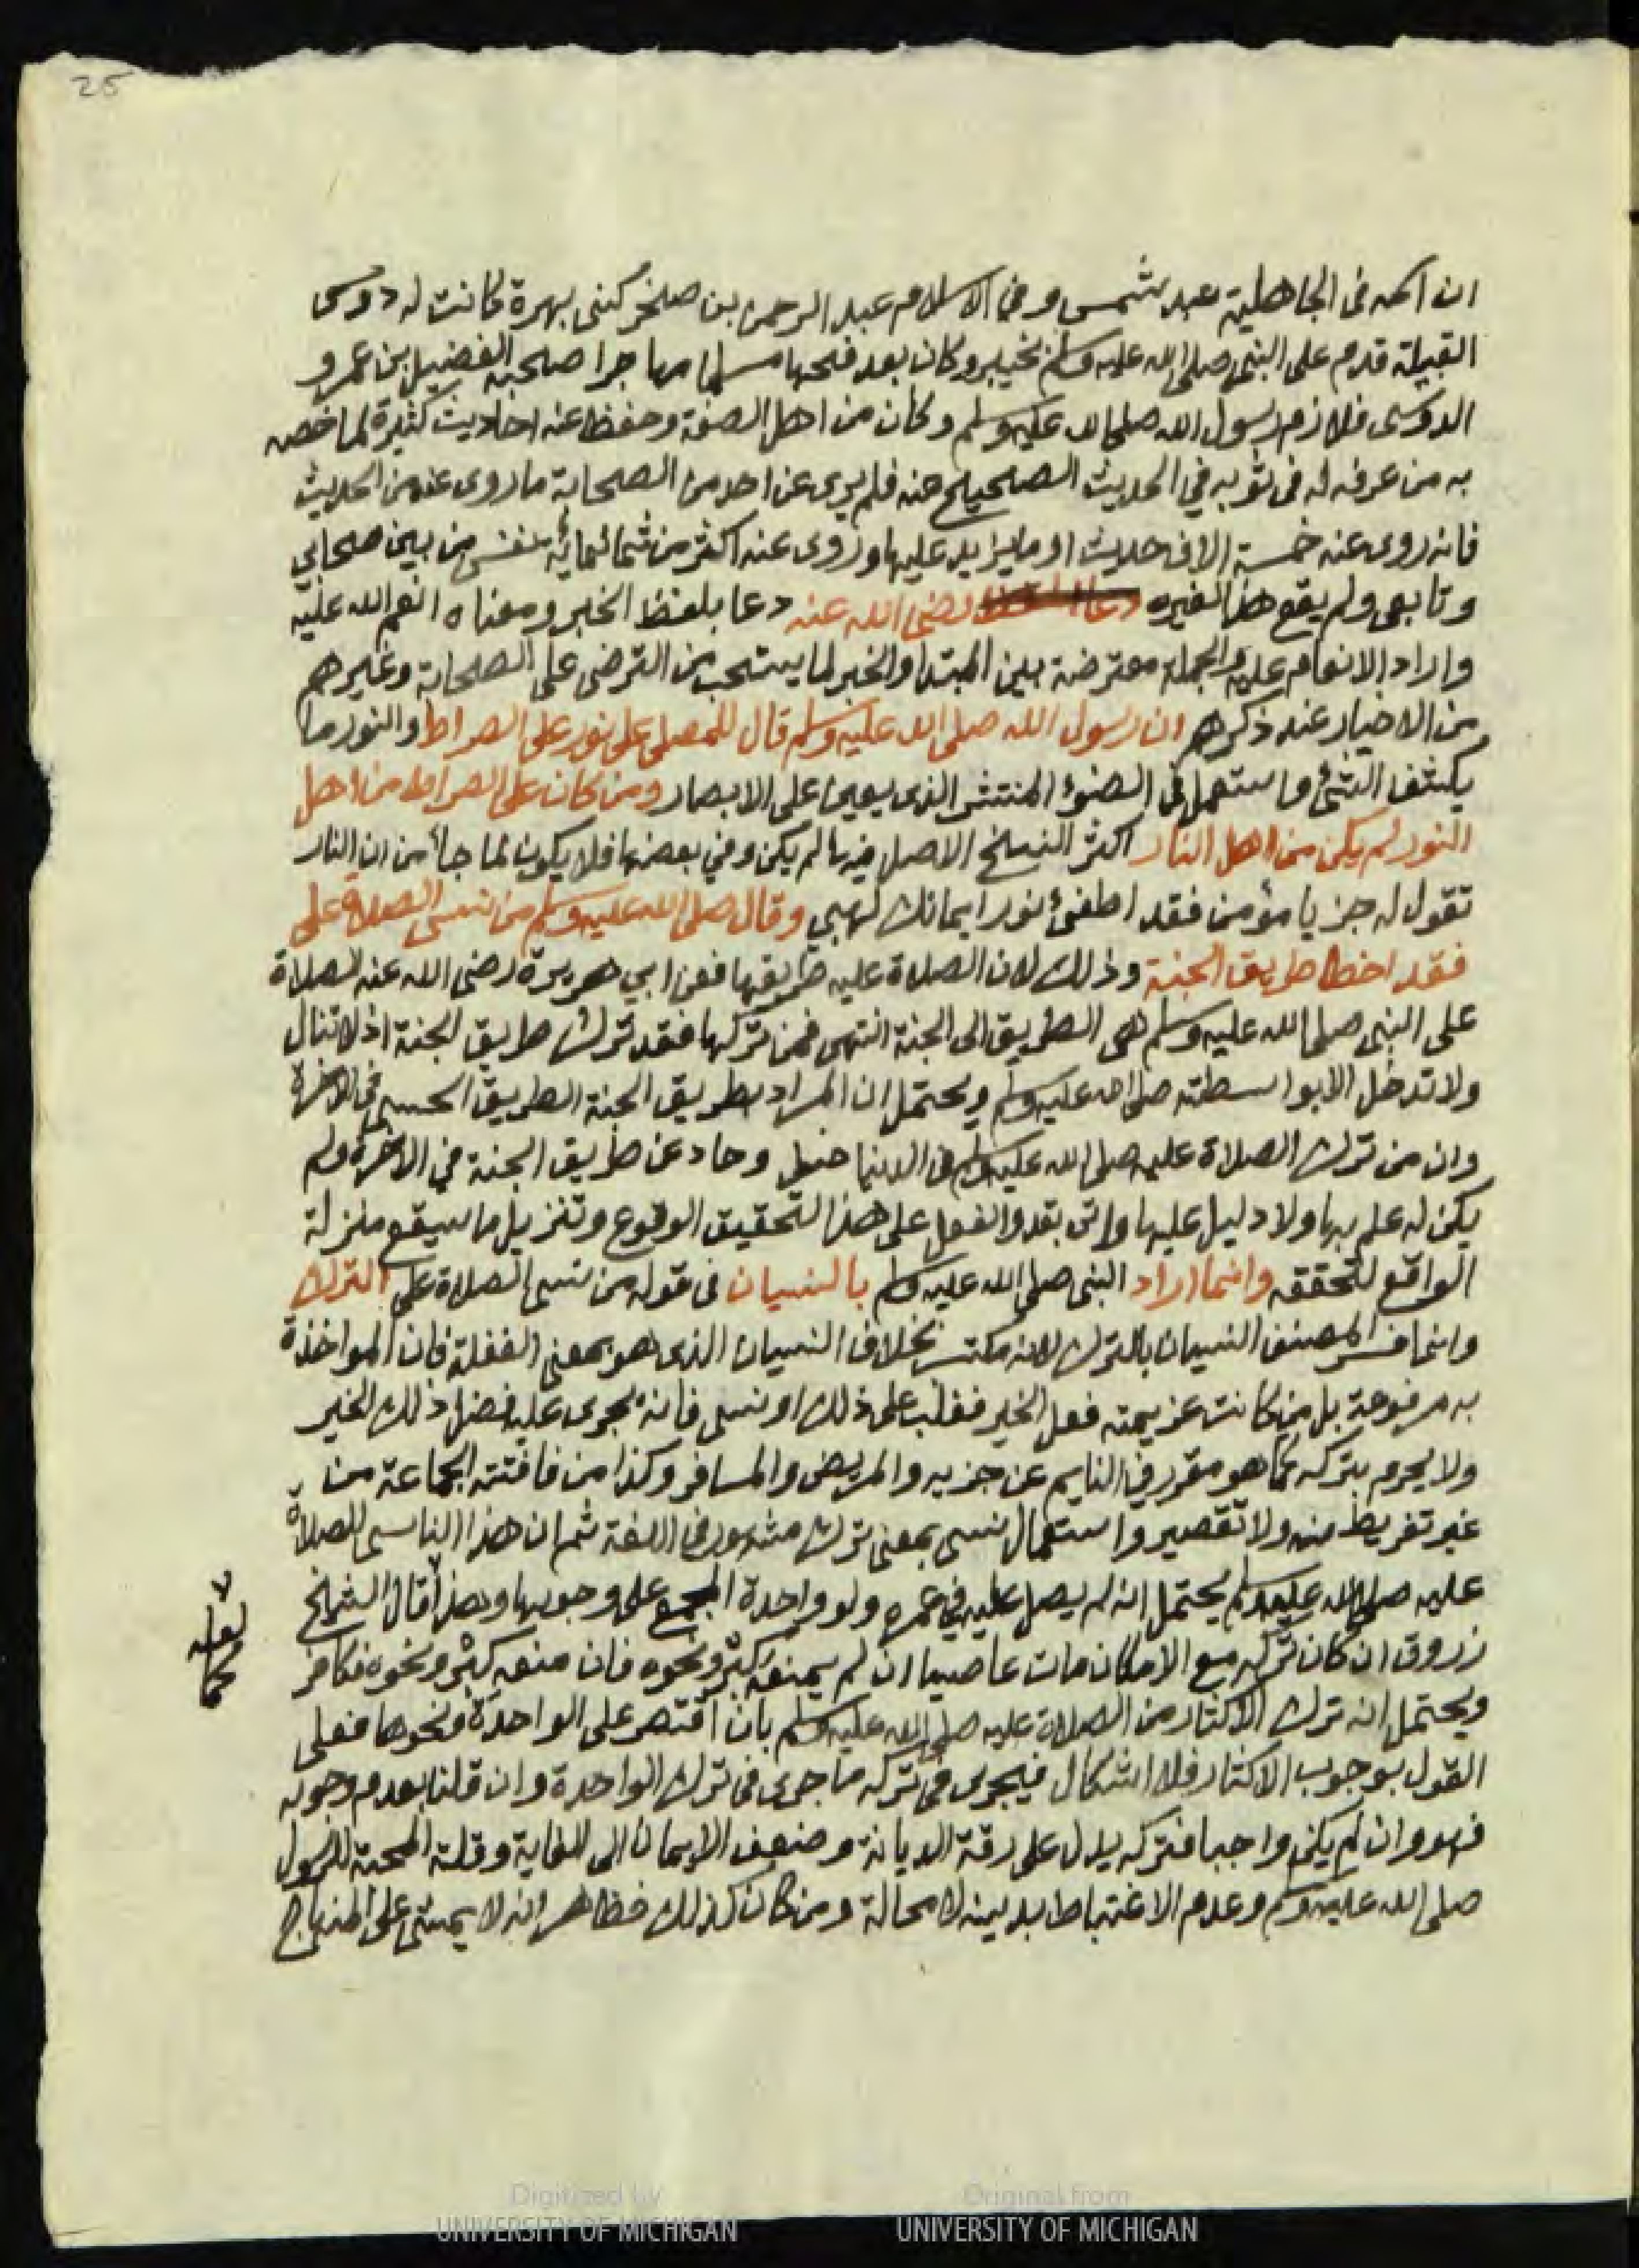 25
ان اسمه فى الجاهلية عبد شمس وفي الاسلام عبد الرحمن بن صخر كنى بهرة كانت له دوسى
القبيلة قدم على النبى صلى الله عليه وسلم بخيبر وكان بعد فتحها مسلما مهاجرا صحبة الفضيل بن عمرو
الدوسى فلازم رسول الله صلى الله عليه وسلم وكان من اهل الصفة وحفظ عنه احاديث كثيرة لما خصه
به من غرفه له فى ثوبه في الحديث الصحيح عنه فلم يرى عن احد من الصحابة ما روى عنه من الحديث
فانه روى عنه خمسة الاف حديث او ما يزايد عليها وروى عنه اكثر من ثمانمائة نفس من بين صحابي
وتابعى ولم يقع هذا لغيره رضى الله عنه دعا بلفظ الخبر ومعناه انعم الله عليه
واراد الانعام عليه والجملة معترضة بين المبتدا والخبر لما يستحب من الترضى على الصحابة وغيرهم
من الاخيار عند ذكرهم ان رسول الله صلى الله عليه وسلم قال للمصلى على نور على الصراط والنور ما
يكشف الشئ واستعمل فى الضوء المنتشر الذى يعين على الابصار ومن كان على الصراط من اهل
النور لم يكن من اهل النار اكثر النسخ الاصل فيها لم يكن وفي بعضها فلا يكون لما جأ من ان النار
تقول له جز يا مؤمن فقد اطفئ نور ايمانك لهبي وقال صلى الله عليه وسلم من نسى الصلاة على
فقد اخطا طريق الجنة وذلك لان الصلاة عليه طريقها فعن ابي هريرة رضى الله عنه الصلاة
على النبى صلى الله عليه وسلم هى الطريق الى الجنة انتهى فمن تركها فقد ترك طريق الجنة اذ لا تنال
ولا تدخل الا بواسطته صلى الله عليه وسلم ويحتمل ان المراد بطريق الجنة الطريق الحسى فى الاخرة
وان من ترك الصلاة عليه صلى الله عليه وسلم فى الدنيا ضل وحاد عن طريق الجنة في الاخرة ولم
يكن له علم بها ولا دليل عليها واتى بقد والفعل على هذا لتحقيق الوقوع وتنزيل ما سيقع منزلة
الواقع لتحققه وانما اراد النبى صلى الله عليه وسلم بالنسيان فى قوله من نسى الصلاة على الترك
وانما فسر المصنف النسيان بالترك لانه مكتسب بخلاف النسيان الذى هو بمعنى الغفلة فان المواخذة
به مرفوعة بل من كانت عزيمته فعل الخير فغلب على ذلك او نسى فانه يجرى عليه فضل ذلك الخير
ولا يحرم بتركه كما هو مقرر في النايم عن حزبه والمريض والمسافر وكذا من فاتته الجماعة من
غير تفريط منه ولا تقصير واستعمال نسى بمعنى ترك مشهور فى اللغة ثم ان هذا الناسى للصلاة
عليه صلى الله عليه وسلم يحتمل انه لم يصل عليه في عمره ولو واحدة المجمع على وجوبها وهذا قال الشيخ
زروق ان كان تركه مع الامكان مات عاصيا ان لم يمنعه كبر ونحوه فان منعه كبر ونحوه فكافر
ويحتمل انه ترك الاكثار من الصلاة عليه صلى الله عليه وسلم بان اقتصر على الواحدة ونحوها فعلى
القول بوجوب الاكثار فلا اشكال فيجرى فى تركه ما جرى فى ترك الواحدة وان قلنا بعدم وجوبه
فهو وان لم يكن واجبا فتركه يدل على رقة الديانة وضعف الايمان الى الغاية وقلة المحبة للرسول
صلى الله عليه وسلم وعدم الاغتباط بدينه لا محالة ومن كان كذلك فظاهر انه لا يمشى على المنهاج
Digitized by
UNIVERSITY OF MICHIGAN
Original from
UNIVERSITY OF MICHIGAN